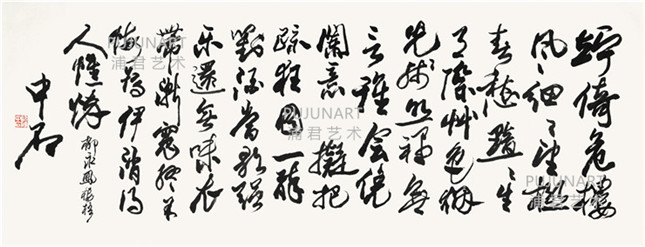 竚倚危樓
風細々望極
春愁黯々生
天際草色烟
光殘照裡無
言誰會凭
闌意擬把
疏狂图一醉
對酒當歌强
乐還無味衣
帶漸寬終不
悔為伊消得
人憔悴 柳永鳳栖梧
中石
PUJUNART
浦君艺术
PUJUNART
浦君艺术
PUJUNART
浦君艺术
PUJUNART
浦君艺术